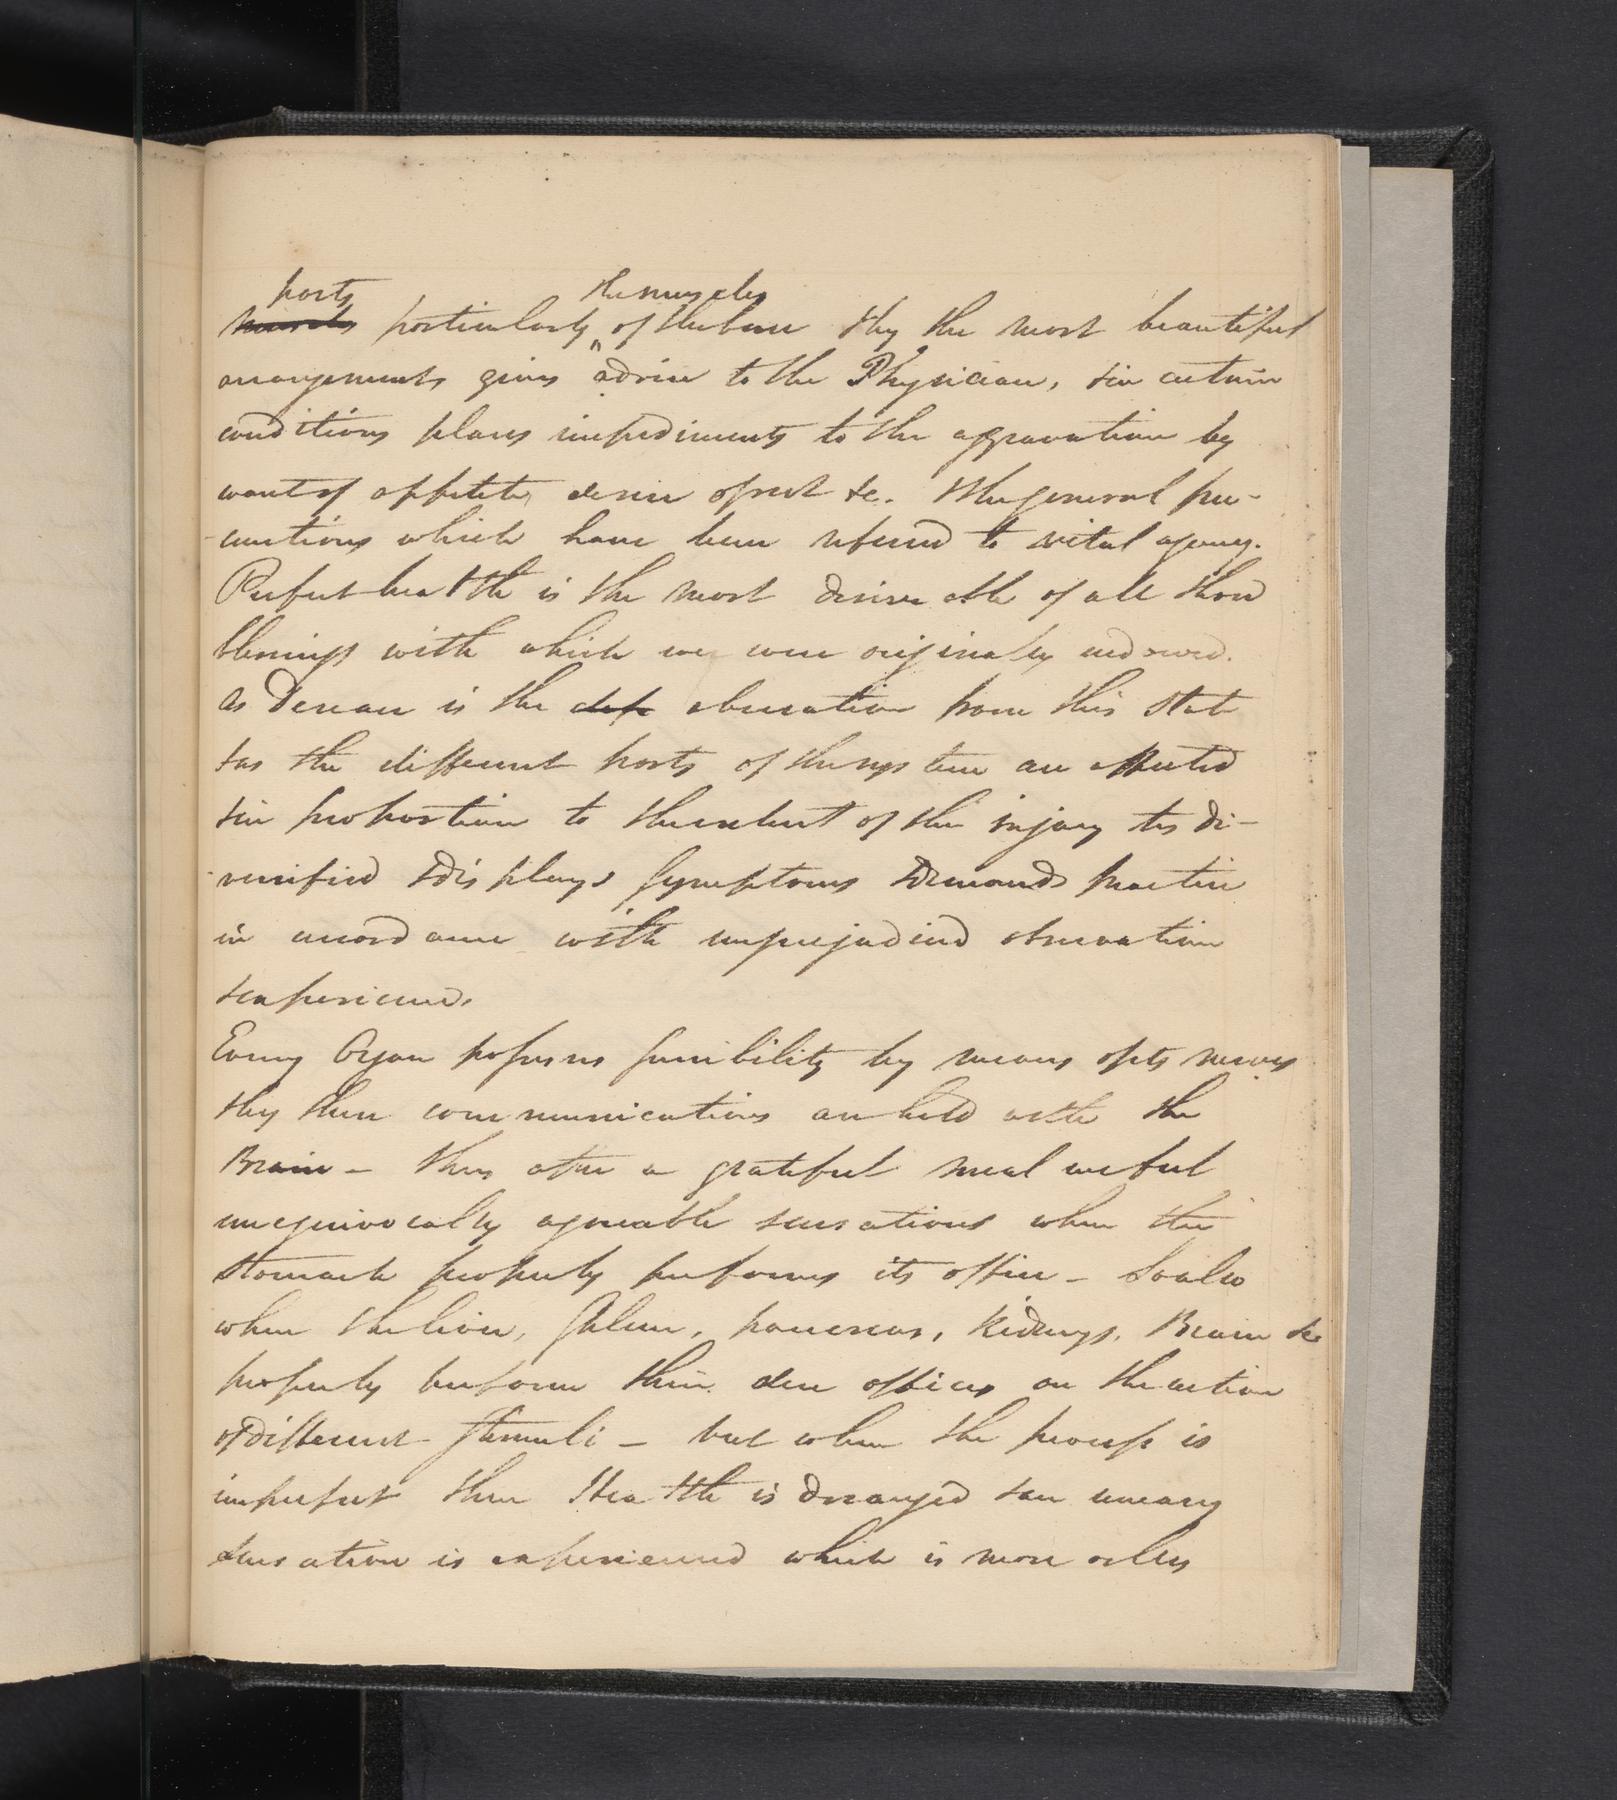 parts the muscles
muscles particularly of the face & by the most beautiful
arrangements gives advice to the Physician, & in certain
conditions places impediments to the aggravation by
want of appetite, desire of rest &c. The general pre-
-cautions which have been referred to vital agency.
Perfect health is the most desireable of all those
blessings with which we were originaly endowed.
as Disease is the abberation from this state
& as the different parts of the system are affected
& in proportion to the extent of the injury its di-
-versified & displays Symptoms & Demands practice
in accordance with unprejudiced observation
& experience.
Every Organ possesses sensibility by means of its nerves
& by these communications are held with the
Brain - thus after a grateful meal we feel
unequivocally agreeable sensations when the
stomach properly performs its office - So also
when the liver, spleen, pancreas, Kidneys, Brain &c
properly perform their due offices on the action
of different stimuli - but when the process is
imperfect then Health is deranged & an uneasy
sensation is experienced which is more or less